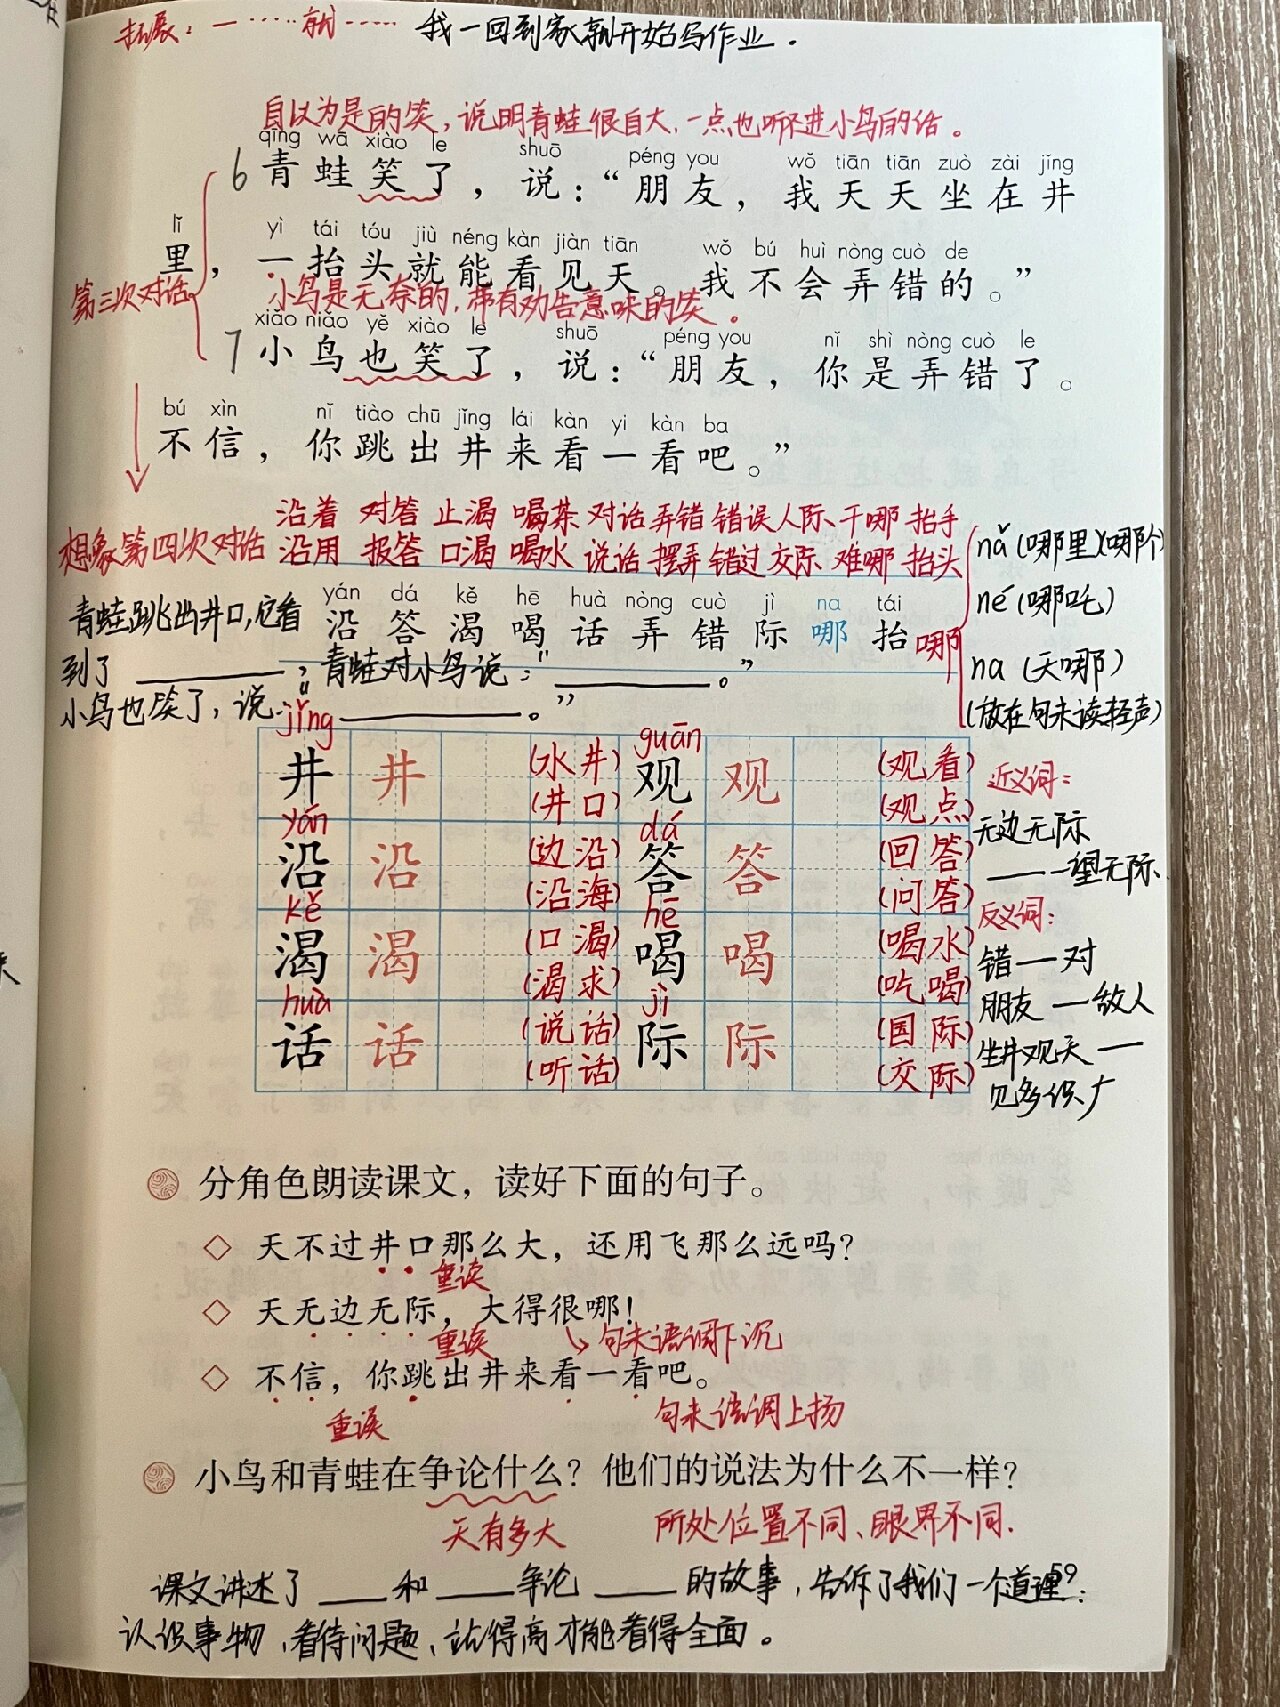 拓展：一……就…… 我一回到家就开始写作业.
自以为是的笑，说明青蛙很自大，一点也听不进小鸟的话。
qīng wā xiào le shuō péng you wǒ tiān tiān zuò zài jǐng
6 青蛙笑了，说：“朋友，我天天坐在井
lǐ yì tái tóu jiù néng kàn jiàn tiān wǒ bú huì nòng cuò de
里，一抬头就能看见天。我不会弄错的。”
第三次对话
小鸟是无奈的，带有劝告意味的笑。
xiǎo niǎo yě xiào le shuō péng you nǐ shì nòng cuò le
7 小鸟也笑了，说：“朋友，你是弄错了。
bú xìn nǐ tiào chū jǐng lái kàn yi kàn ba
不信，你跳出井来看一看吧。”
沿着 对答 止渴 喝茶 对话 弄错 错误 人际 干哪 抬手
想象第四次对话 沿用 报答 口渴 喝水 说话 摆弄 错过 交际 难哪 抬头
nǎ（哪里）（哪个）
né（哪吒）
na（天哪）
（放在句末读轻声）
yán dá kě hē huà nòng cuò jì na tái
沿答渴喝话弄错际哪抬 哪
青蛙跳出井口，它看
到了______，青蛙对小鸟说：“______。”
小鸟也笑了，说：“______。”
jǐng guān
井 井 （水井） 观 观 （观看）
（井口） （观点）
yán dá
沿 沿 （边沿） 答 答 （回答）
（沿海） （问答）
kě hē
渴 渴 （口渴） 喝 喝 （喝水）
（渴求） （吃喝）
huà jì
话 话 （说话） 际 际 （国际）
（听话） （交际）
近义词：
无边无际
——一望无际
反义词：
错—对
朋友—敌人
坐井观天—
见多识广
分角色朗读课文，读好下面的句子。
◇ 天不过井口那么大，还用飞那么远吗？
重读
◇ 天无边无际，大得很哪！
重读 句末语调下沉
◇ 不信，你跳出井来看一看吧。
重读 句末语调上扬
小鸟和青蛙在争论什么？他们的说法为什么不一样？
天有多大 所处位置不同、眼界不同.
59
课文讲述了____和____争论____的故事，告诉了我们一个道理：
认识事物、看待问题、站得高才能看得全面。